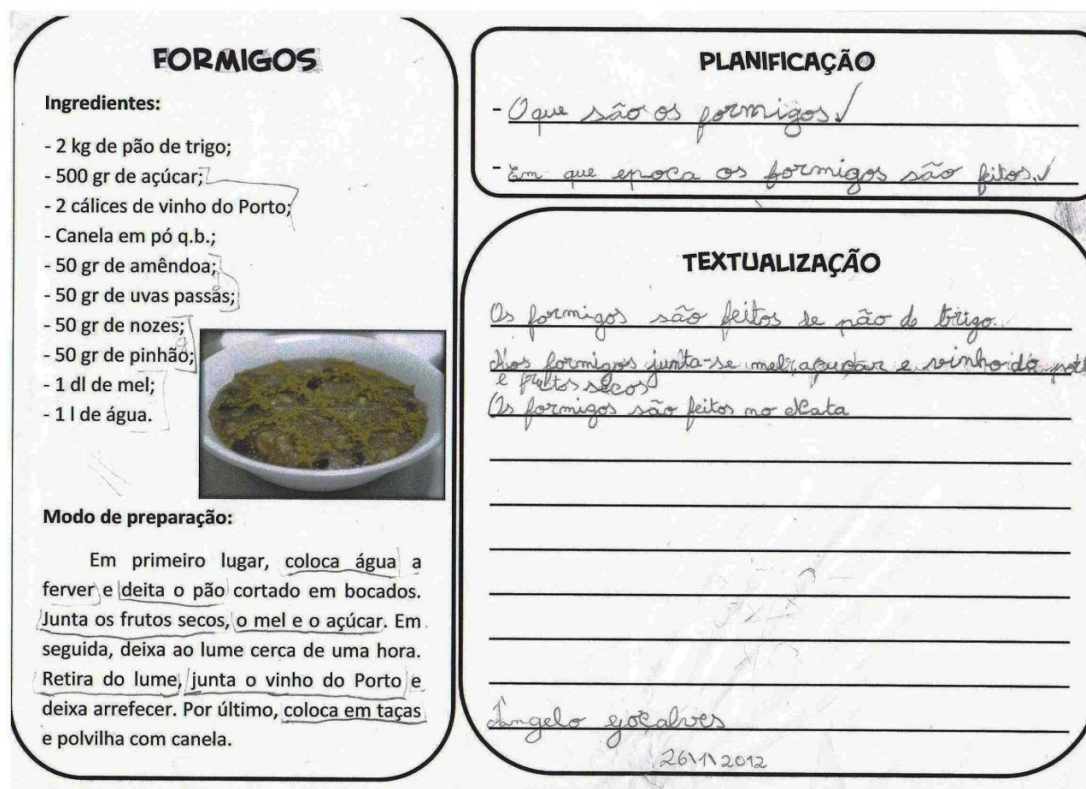 FORMIGOS
Ingredientes:
- 2 kg de pão de trigo;
- 500 gr de açúcar;
- 2 cálices de vinho do Porto;
- Canela em pó q.b.;
- 50 gr de amêndoa;
- 50 gr de uvas passas;
- 50 gr de nozes;
- 50 gr de pinhão;
- 1 dl de mel;
- 1 l de água.
Modo de preparação:
Em primeiro lugar, coloca água a
ferver e deita o pão cortado em bocados.
Junta os frutos secos, o mel e o açúcar. Em
seguida, deixa ao lume cerca de uma hora.
Retira do lume, junta o vinho do Porto e
deixa arrefecer. Por último, coloca em taças
e polvilha com canela.
PLANIFICAÇÃO
- O que são os formigos. ✓
- Em que epoca os formigos são feitos. ✓
TEXTUALIZAÇÃO
Os formigos são feitos de pão de trigo.
Nos formigos junta-se mel, açucar e vinho do
e frutos secos
Os formigos são feitos no Nata
Ângelo goçalves
26\11\2012